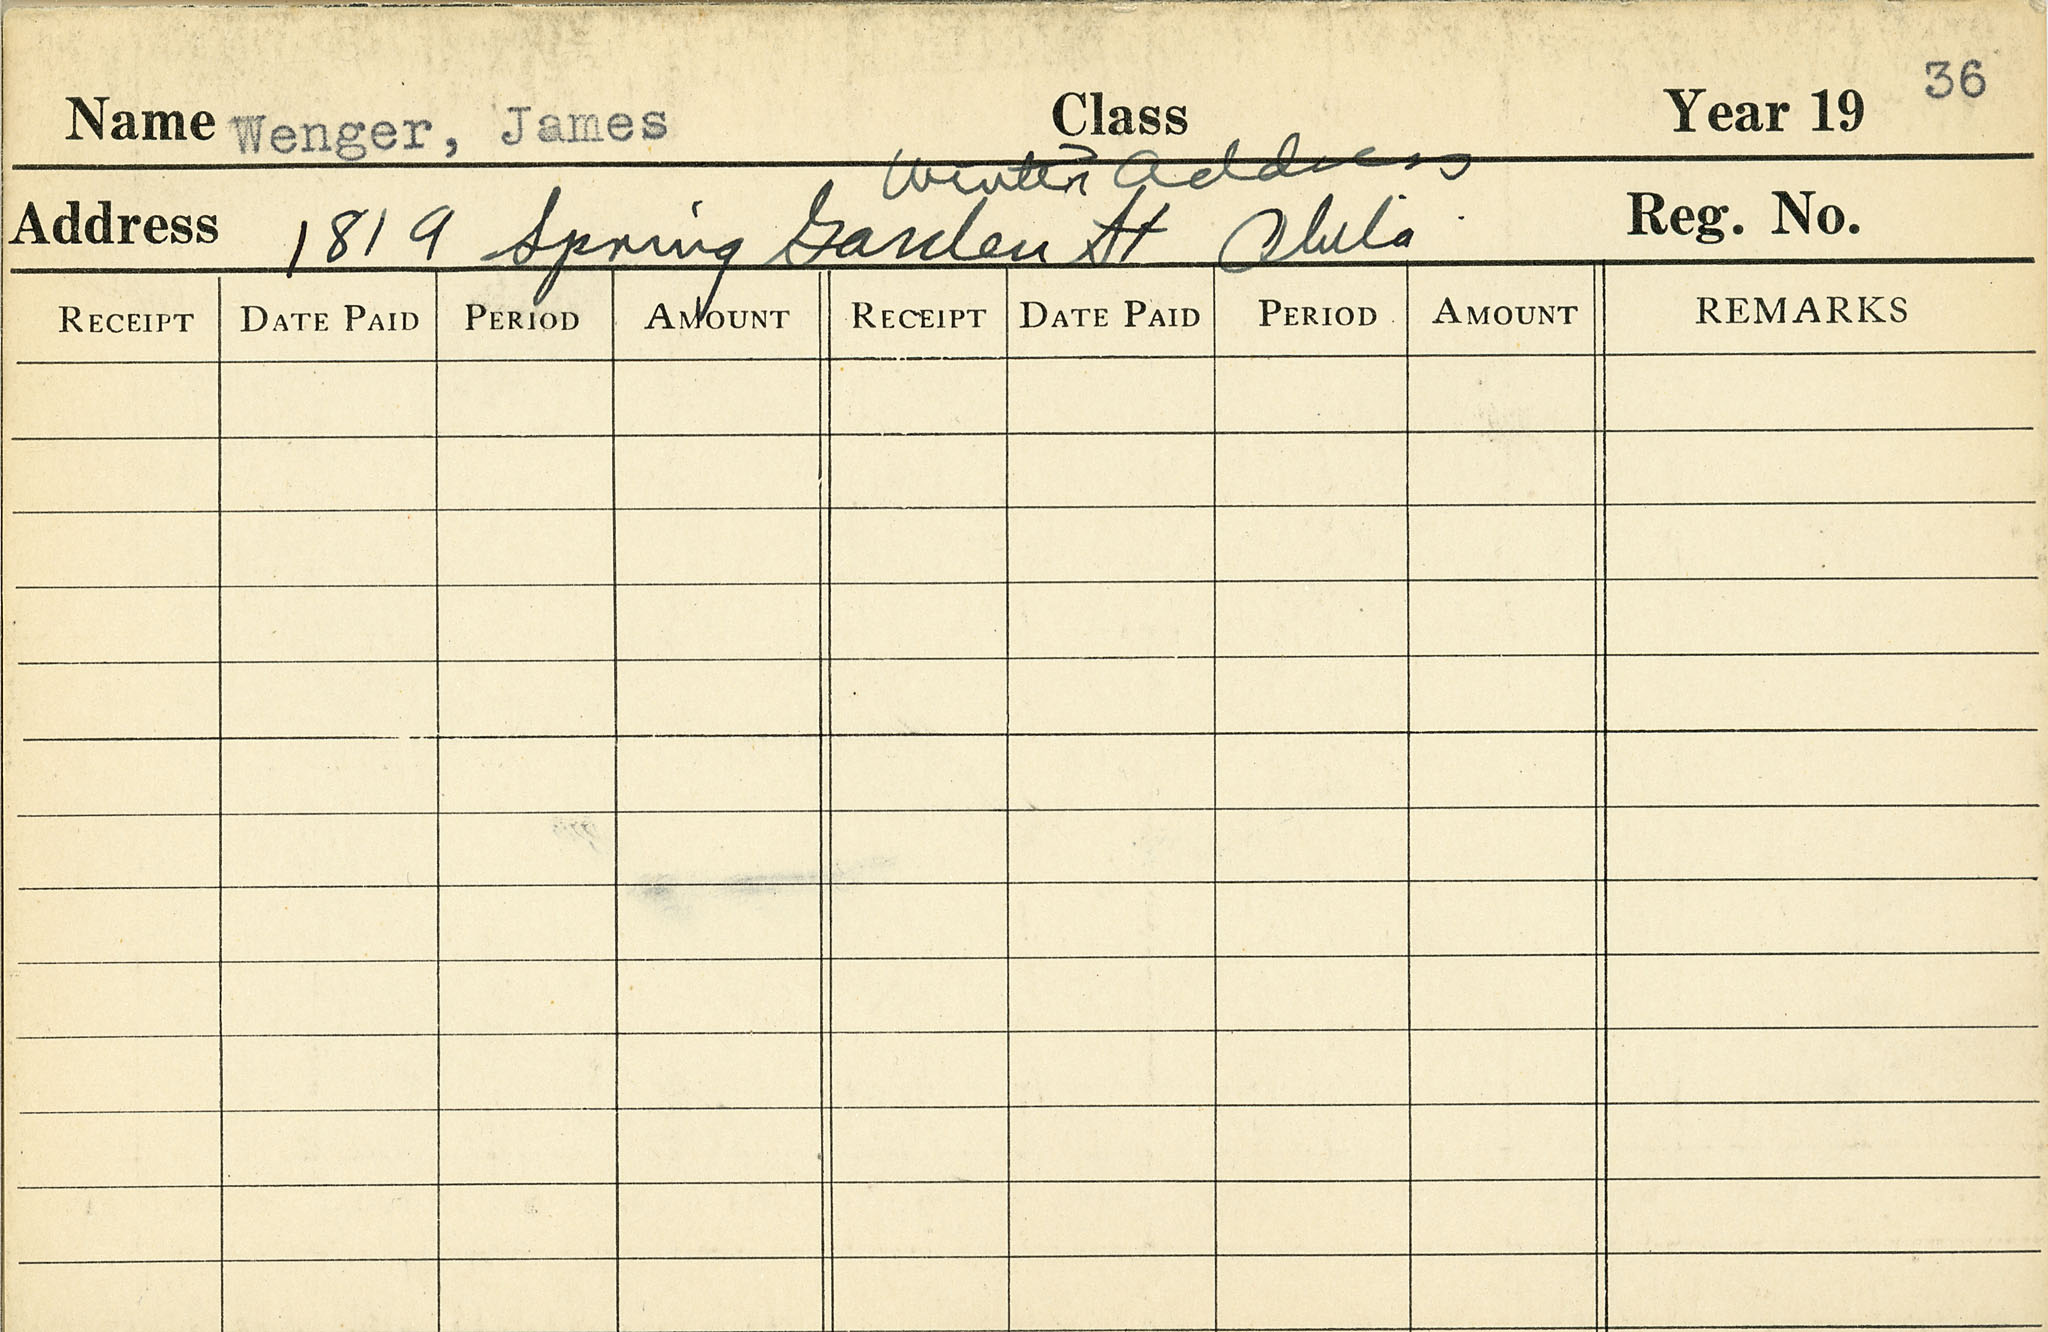 Name Wenger, James Class Year 19 36
Winter Address
Address 1819 Spring Garden St Phila Reg. No.
RECEIPT DATE PAID PERIOD AMOUNT RECEIPT DATE PAID PERIOD AMOUNT REMARKS